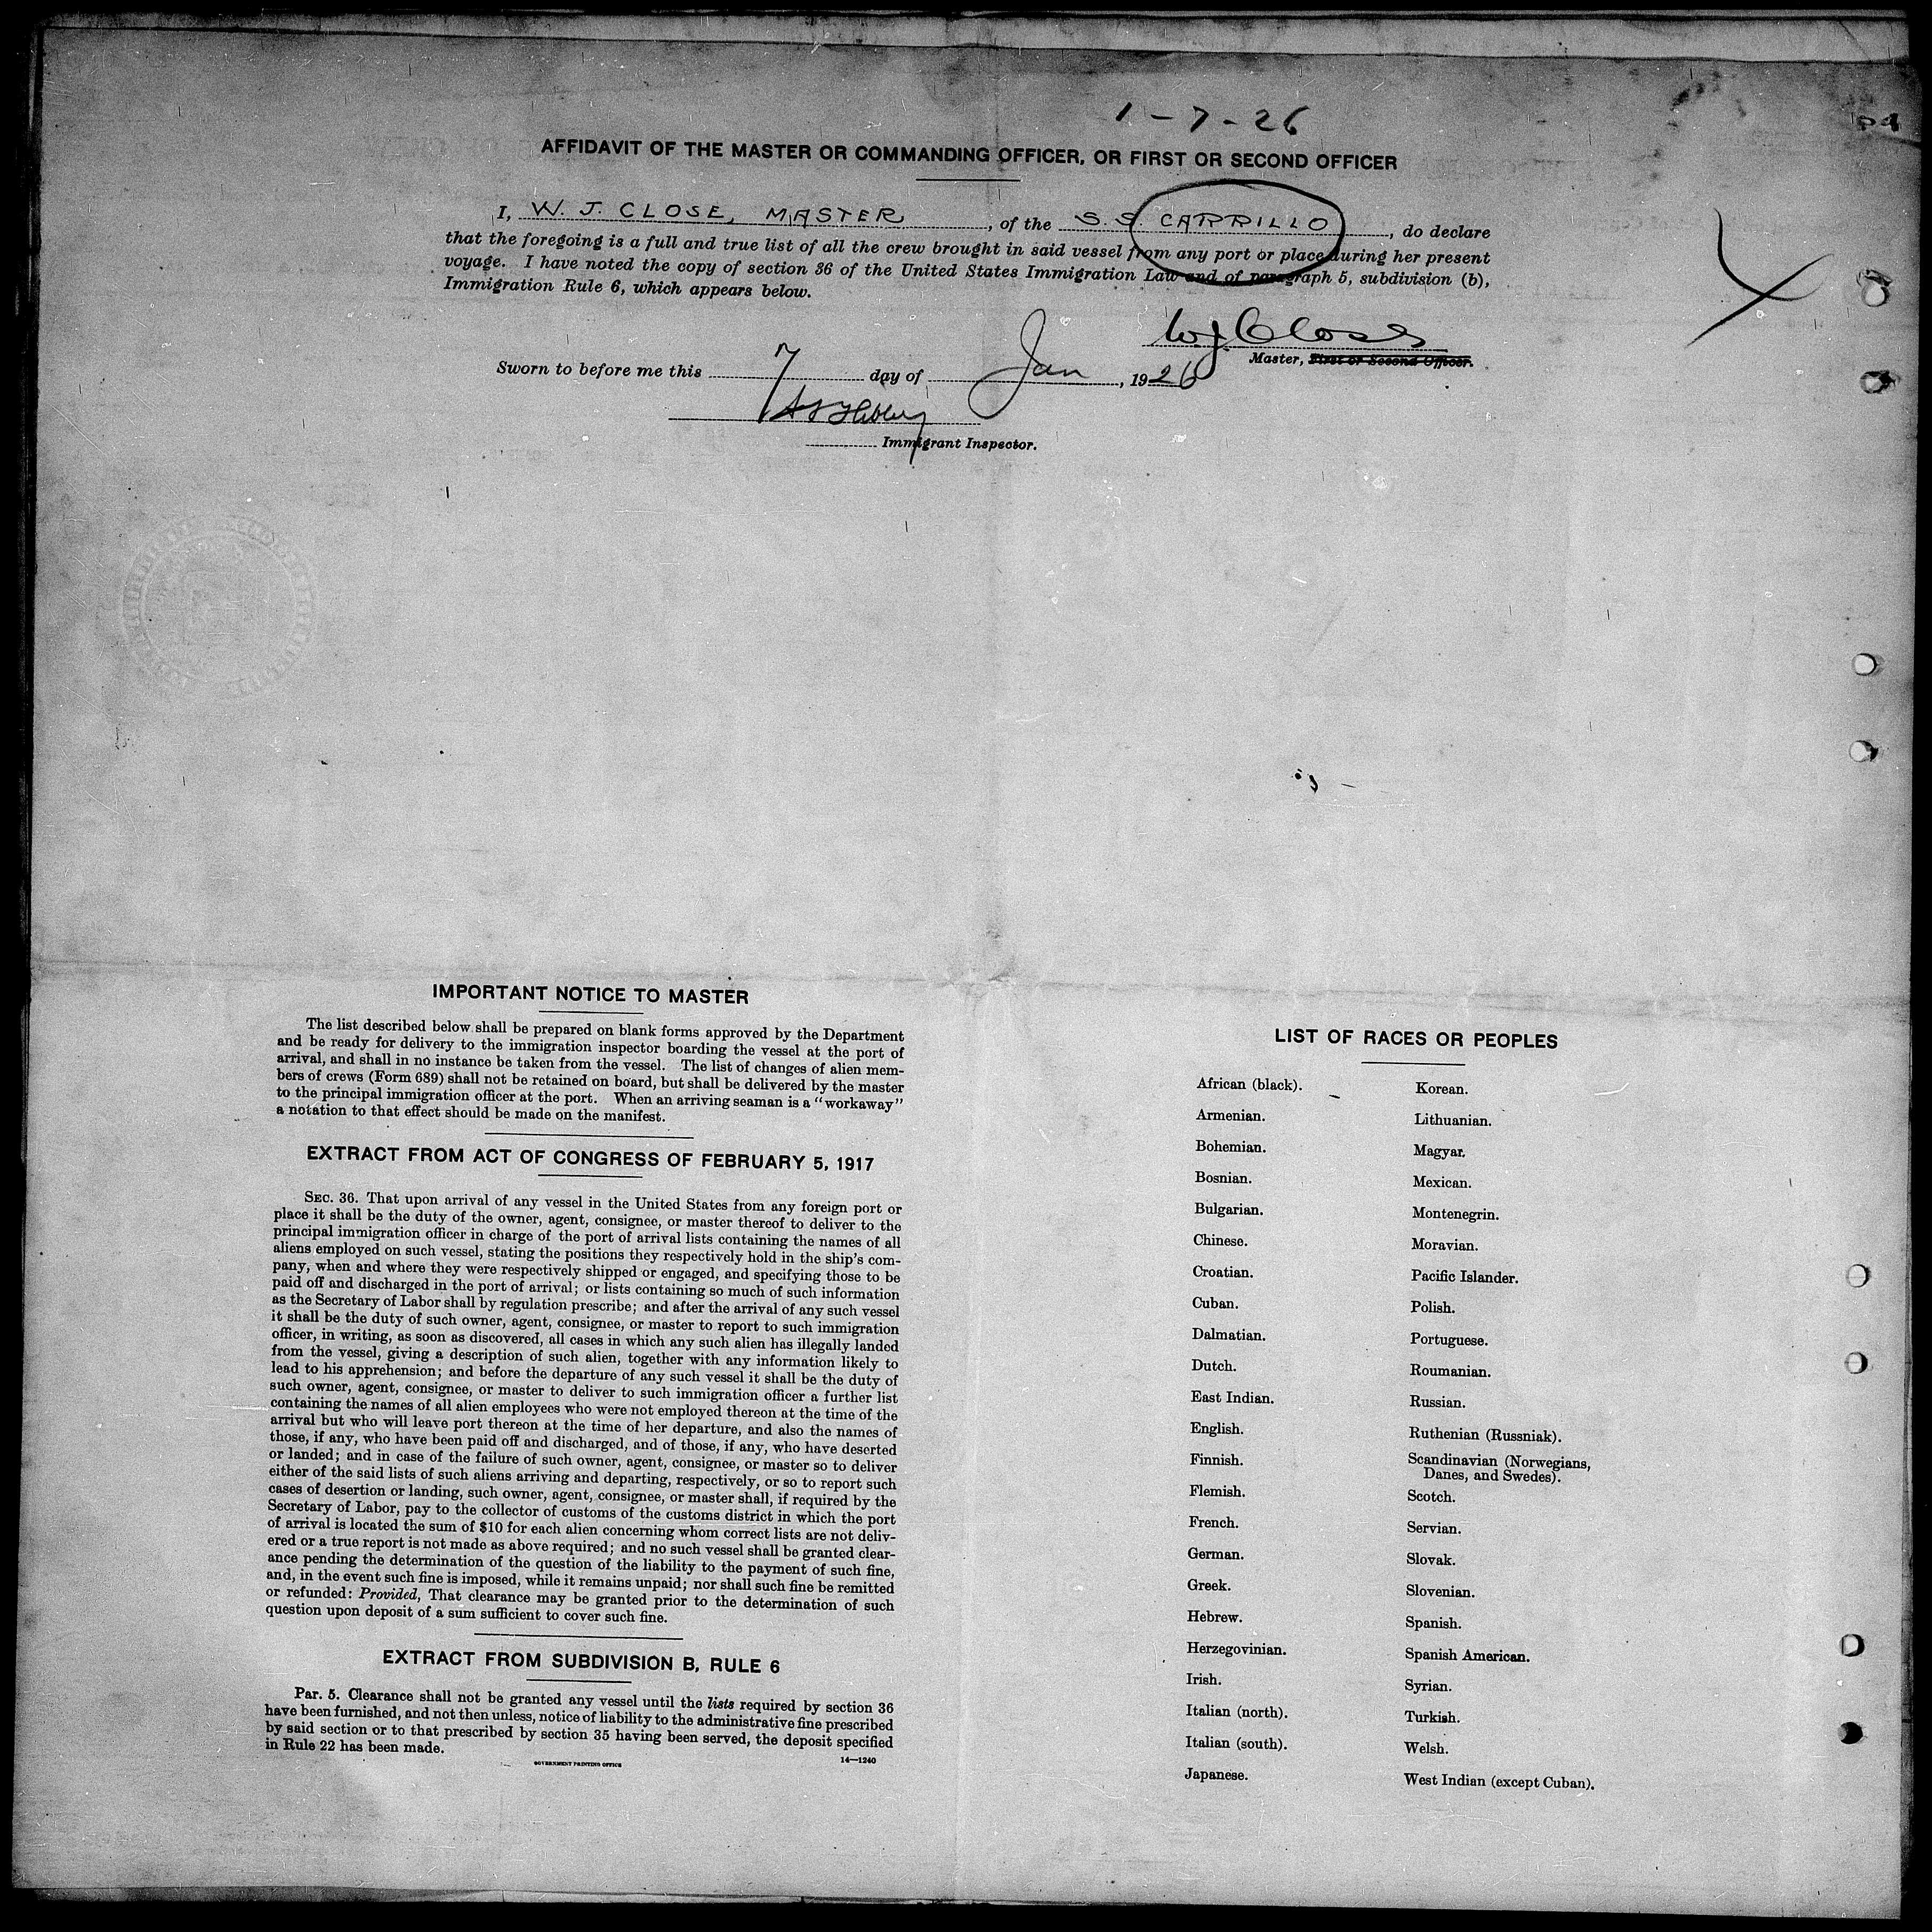 1-7-26
AFFIDAVIT OF THE MASTER OR COMMANDING OFFICER, OR FIRST OR SECOND OFFICER
I, W. J. CLOSE, MASTER, of the S.S. CARRILLO, do declare
that the foregoing is a full and true list of all the crew brought in said vessel from any port or place during her present
voyage. I have noted the copy of section 36 of the United States Immigration Law and of paragraph 5, subdivision (b),
Immigration Rule 6, which appears below.
W. J. Close
Master, First or Second Officer.
Sworn to before me this 7 day of Jan, 1926
Immigrant Inspector.
IMPORTANT NOTICE TO MASTER
The list described below shall be prepared on blank forms approved by the Department
and be ready for delivery to the immigration inspector boarding the vessel at the port of
arrival, and shall in no instance be taken from the vessel. The list of changes of alien mem-
bers of crews (Form 689) shall not be retained on board, but shall be delivered by the master
to the principal immigration officer at the port. When an arriving seaman is a "workaway"
a notation to that effect should be made on the manifest.
EXTRACT FROM ACT OF CONGRESS OF FEBRUARY 5, 1917
SEC. 36. That upon arrival of any vessel in the United States from any foreign port or
place it shall be the duty of the owner, agent, consignee, or master thereof to deliver to the
principal immigration officer in charge of the port of arrival lists containing the names of all
aliens employed on such vessel, stating the positions they respectively hold in the ship's com-
pany, when and where they were respectively shipped or engaged, and specifying those to be
paid off and discharged in the port of arrival; or lists containing so much of such information
as the Secretary of Labor shall by regulation prescribe; and after the arrival of any such vessel
it shall be the duty of such owner, agent, consignee, or master to report to such immigration
officer, in writing, as soon as discovered, all cases in which any such alien has illegally landed
from the vessel, giving a description of such alien, together with any information likely to
lead to his apprehension; and before the departure of any such vessel it shall be the duty of
such owner, agent, consignee, or master to deliver to such immigration officer a further list
containing the names of all alien employees who were not employed thereon at the time of the
arrival but who will leave port thereon at the time of her departure, and also the names of
those, if any, who have been paid off and discharged, and of those, if any, who have deserted
or landed; and in case of the failure of such owner, agent, consignee, or master so to deliver
either of the said lists of such aliens arriving and departing, respectively, or so to report such
cases of desertion or landing, such owner, agent, consignee, or master shall, if required by the
Secretary of Labor, pay to the collector of customs of the customs district in which the port
of arrival is located the sum of $10 for each alien concerning whom correct lists are not deliv-
ered or a true report is not made as above required; and no such vessel shall be granted clear-
ance pending the determination of the question of the liability to the payment of such fine,
and, in the event such fine is imposed, while it remains unpaid; nor shall such fine be remitted
or refunded: Provided, That clearance may be granted prior to the determination of such
question upon deposit of a sum sufficient to cover such fine.
EXTRACT FROM SUBDIVISION B, RULE 6
Par. 5. Clearance shall not be granted any vessel until the lists required by section 36
have been furnished, and not then unless, notice of liability to the administrative fine prescribed
by said section or to that prescribed by section 35 having been served, the deposit specified
in Rule 22 has been made.
GOVERNMENT PRINTING OFFICE 14—1240
LIST OF RACES OR PEOPLES
African (black).
Armenian.
Bohemian.
Bosnian.
Bulgarian.
Chinese.
Croatian.
Cuban.
Dalmatian.
Dutch.
East Indian.
English.
Finnish.
Flemish.
French.
German.
Greek.
Hebrew.
Herzegovinian.
Irish.
Italian (north).
Italian (south).
Japanese.
Korean.
Lithuanian.
Magyar.
Mexican.
Montenegrin.
Moravian.
Pacific Islander.
Polish.
Portuguese.
Roumanian.
Russian.
Ruthenian (Russniak).
Scandinavian (Norwegians,
Danes, and Swedes).
Scotch.
Servian.
Slovak.
Slovenian.
Spanish.
Spanish American.
Syrian.
Turkish.
Welsh.
West Indian (except Cuban).